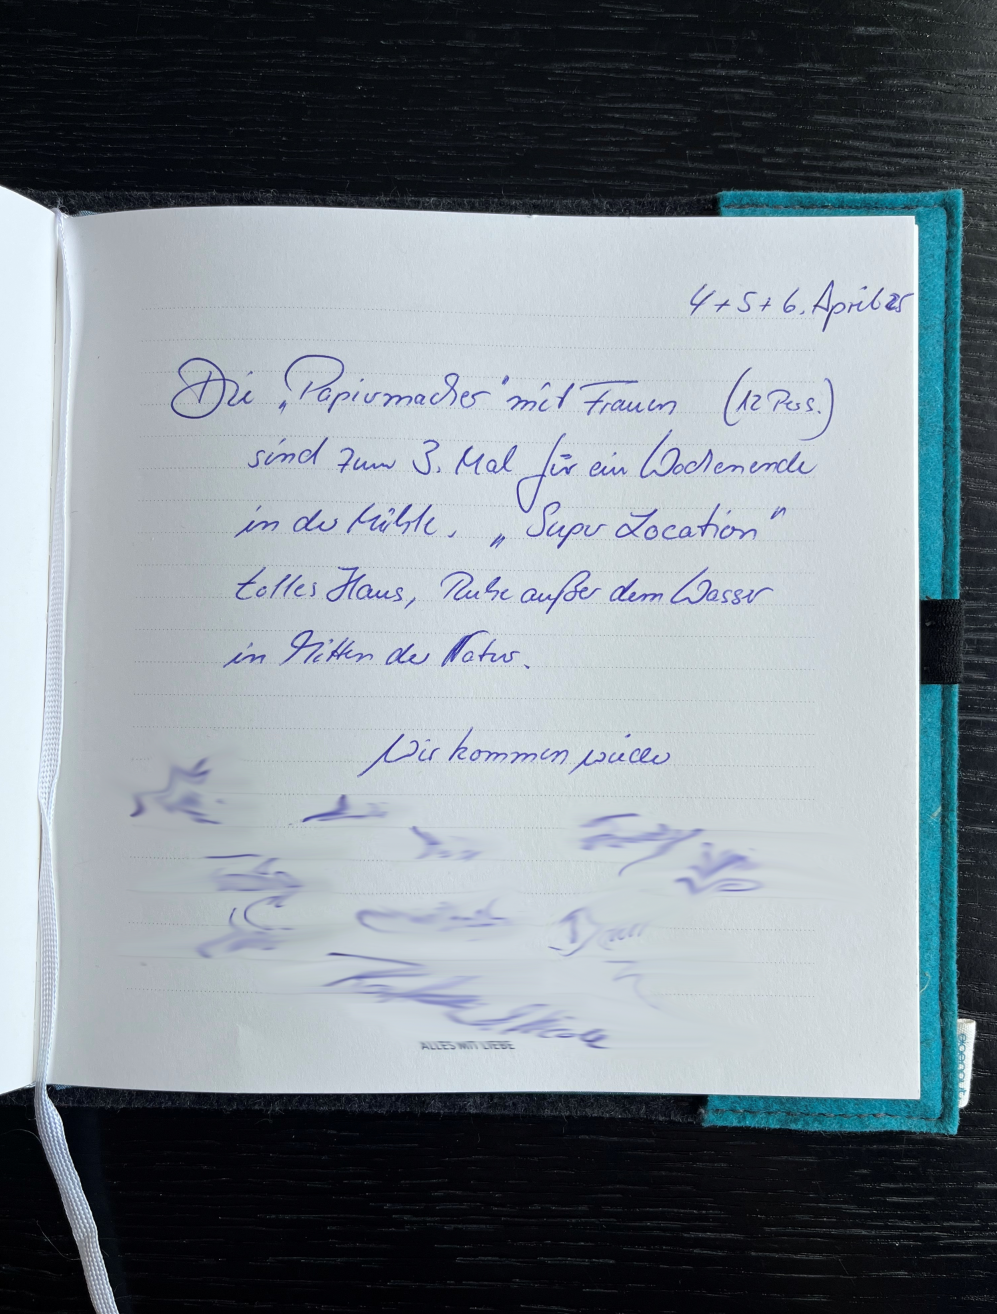 4+5+6. April 25
Die „Papiermacher" mit Frauen (12 Pers.)
sind zum 3. Mal für ein Wochenende
in der Mühle. „Super Location"
tolles Haus, Ruhe außer dem Wasser
in Mitten der Natur.
Wir kommen wieder
ALLES MIT LIEBE